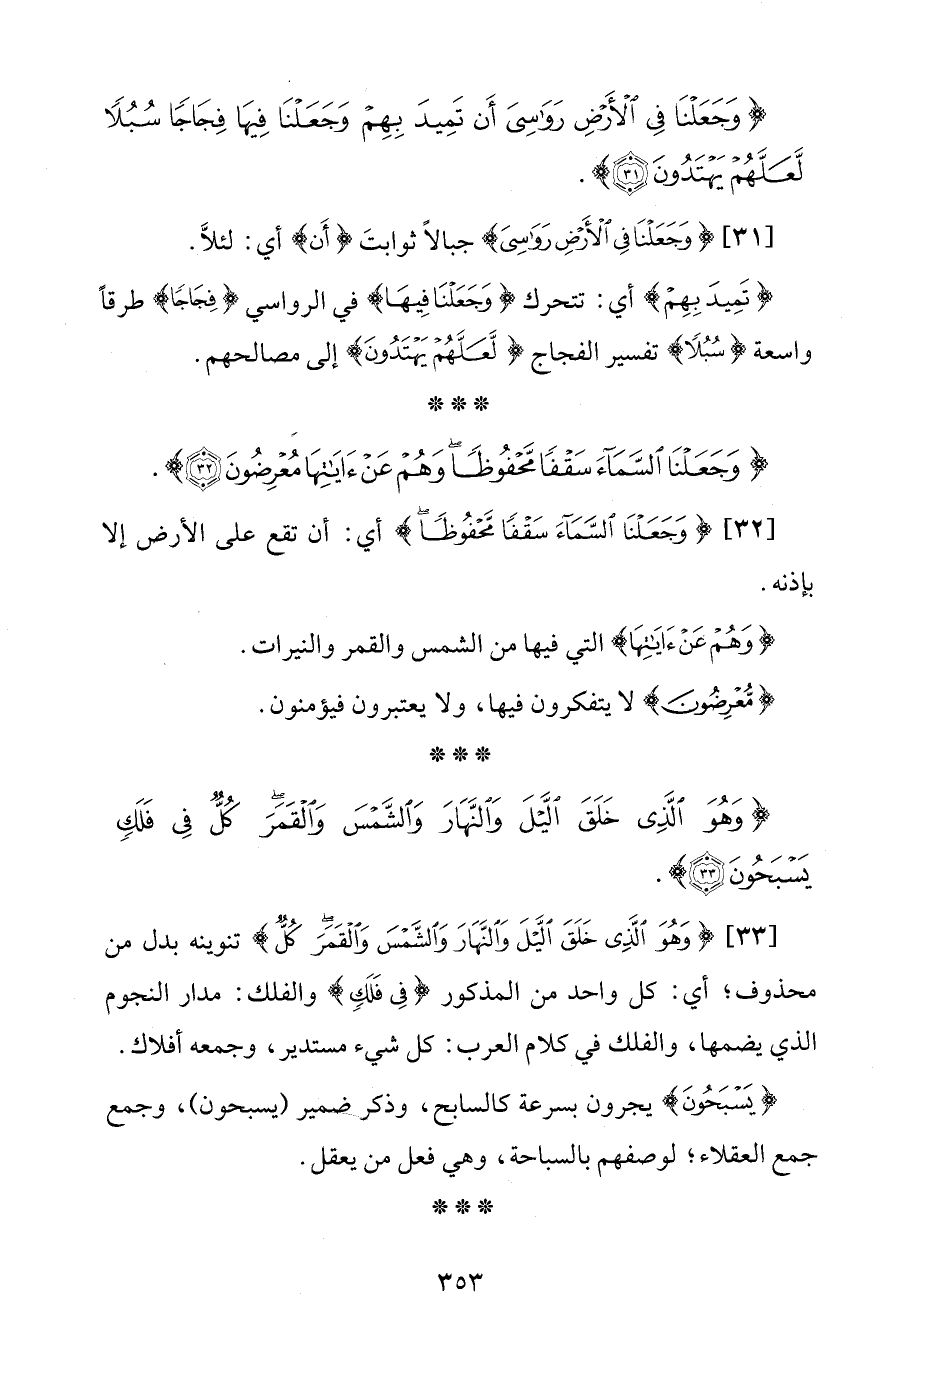 ﴿ وَجَعَلْنَا فِى ٱلْأَرْضِ رَوَٰسِىَ أَن تَمِيدَ بِهِمْ وَجَعَلْنَا فِيهَا فِجَاجًا سُبُلًا
لَّعَلَّهُمْ يَهْتَدُونَ ٣١ ﴾ .
[٣١] ﴿ وَجَعَلْنَا فِى ٱلْأَرْضِ رَوَٰسِىَ﴾ جبالاً ثوابتَ ﴿ أَن﴾ أي: لئلاَّ.
﴿ تَمِيدَ بِهِمْ﴾ أي: تتحرك ﴿ وَجَعَلْنَا فِيهَا﴾ في الرواسي ﴿ فِجَاجًا﴾ طرقاً
واسعة ﴿ سُبُلًا﴾ تفسير الفجاج ﴿ لَّعَلَّهُمْ يَهْتَدُونَ﴾ إلى مصالحهم.
* * *
﴿ وَجَعَلْنَا ٱلسَّمَآءَ سَقْفًا مَّحْفُوظًا ۖ وَهُمْ عَنْ ءَايَٰتِهَا مُعْرِضُونَ ٣٢ ﴾ .
[٣٢] ﴿ وَجَعَلْنَا ٱلسَّمَآءَ سَقْفًا مَّحْفُوظًا ۖ ﴾ أي: أن تقع على الأرض إلا
بإذنه.
﴿ وَهُمْ عَنْ ءَايَٰتِهَا﴾ التي فيها من الشمس والقمر والنيرات.
﴿ مُّعْرِضُونَ﴾ لا يتفكرون فيها، ولا يعتبرون فيؤمنون.
* * *
﴿ وَهُوَ ٱلَّذِى خَلَقَ ٱلَّيْلَ وَٱلنَّهَارَ وَٱلشَّمْسَ وَٱلْقَمَرَ ۖ كُلٌّ فِى فَلَكٍ
يَسْبَحُونَ ٣٣ ﴾ .
[٣٣] ﴿ وَهُوَ ٱلَّذِى خَلَقَ ٱلَّيْلَ وَٱلنَّهَارَ وَٱلشَّمْسَ وَٱلْقَمَرَ ۖ كُلٌّ ﴾ تنوينه بدل من
محذوف؛ أي: كل واحد من المذكور ﴿ فِى فَلَكٍ ﴾ والفلك: مدار النجوم
الذي يضمها، والفلك في كلام العرب: كل شيء مستدير، وجمعه أفلاك.
﴿ يَسْبَحُونَ﴾ يجرون بسرعة كالسابح، وذكر ضمير (يسبحون)، وجمع
جمع العقلاء؛ لوصفهم بالسباحة، وهي فعل من يعقل.
* * *
٣٥٣